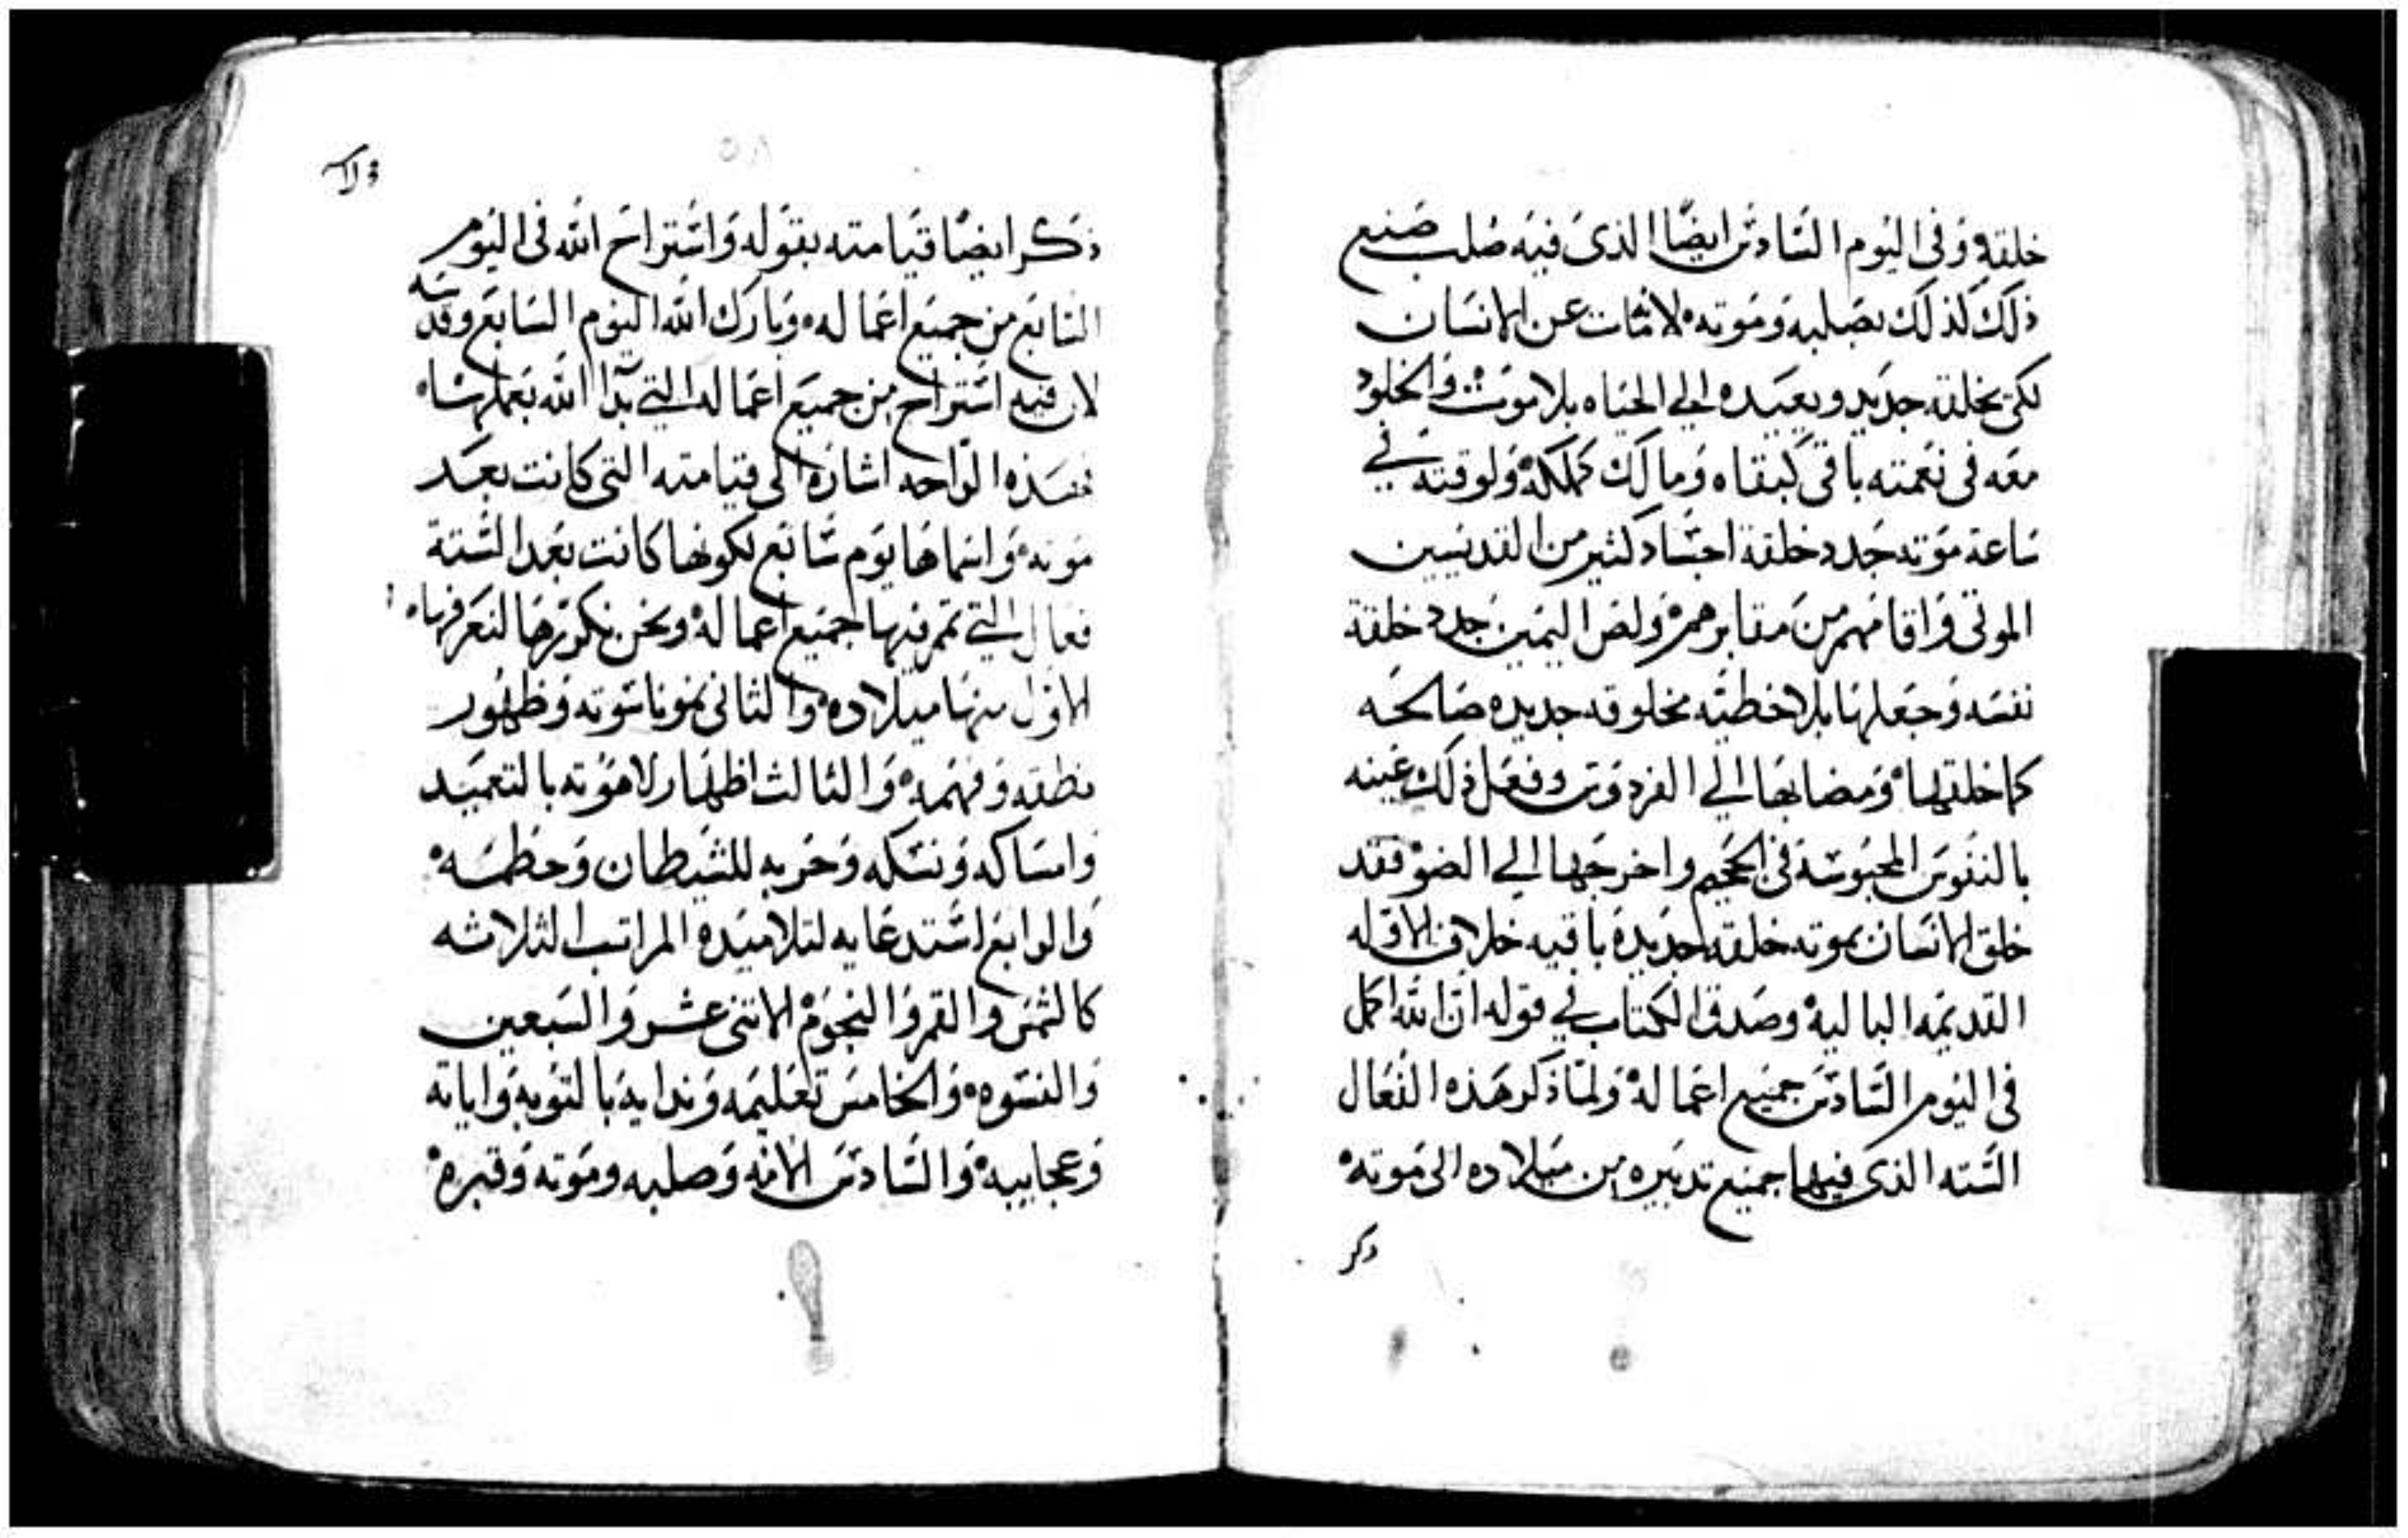 خلقه وفى اليوم السادس ايضًا الذى فيه صُلب صنع
ذلك كذلك بصَلبه وَمَوته لامّات عن الانسَان
لكى بخلقه جديد ويعيده الي الحيَاه بلا موت والخلود
معَه فى نعمته باقى كبقاه وَمالك كملكه ولوقته في
سَاعة مَوته جَدد خلقة اجسَاد كثير من القديسين
الموتى وَاقامهم من مقابرهم وَلص اليمين جدد خلقة
نفسَه وَجعلها بلا خطيّه مخلوقه جديده صَالحَه
كما خلقها وَمضا بها الي الفردوس وفعَل ذلك عينه
بالنفوس المحبوسَة فى الجحيم واخرجَها الي الضوْ فقد
خلق الانسَان بموته خلقه جديدة باقيه خلاف الاوله
القديمَه الباليه وصَدق الكتاب في قوله انّ الله اكمل
فى اليوم السَّادسَ جميع اعمَاله وَلمّا ذكر هَذه الفعَال
السَّته الذى فيها جميع تدبيره من ميلاده الى مَوته
ذكر
ذكر ايضًا قيَامته بقوله وَاستراح الله فى اليوم
السَابَع من جميع اعمَاله وَبارك الله اليوم السَابع وقدسَه
لان فيه استراح من جميع اعمَاله التي بَدا الله بَعملها
فهَذه الوَاحده اشارَة الى قيامته التى كانت بعَد
مَوته وَاسماهَا يوم سَّابع لكونها كانت بعَد السَّتة
فعال التي تمم فيها جميع اعماله ونحن نكرّرهَا لنعَرفها
الاوَل منها ميلاده وَالثانى نمو ناسوته وَظهُور
نطقه وَفهمَه وَالثالث اظهَار لاهوته بالتعميد
وَامسَاكه وَنسَكه وَحَربه للشيطان وَحَطمَه
وَالرابع استدعَايه لتلاميَده المراتب الثلاثه
كالشمَس وَالقمر وَالنجوم الاتنى عشر وَالسَبعين
وَالنسَوه وَالخامسَ تعَليمَه وَندايه بَالتوبه وَاياته
وَعجايبه وَالسَّادسَ الامَه وَصلبه وموَته وَقبره